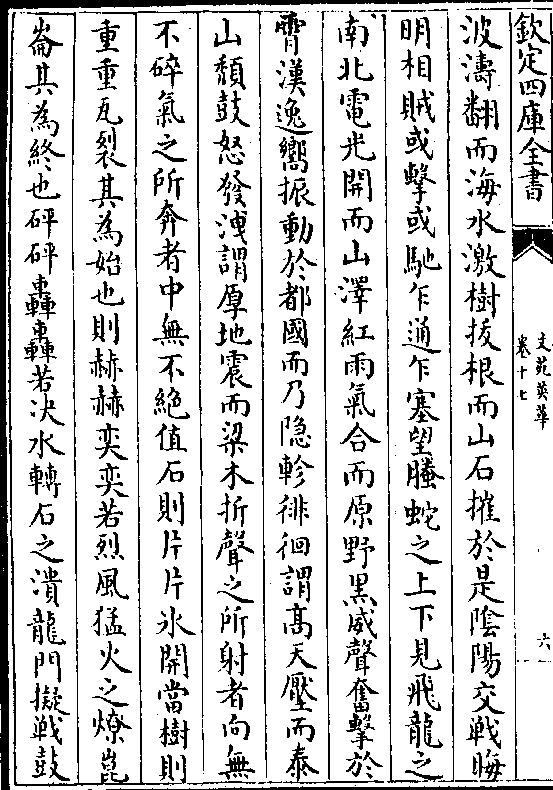 欽定四庫全書
文苑英華
卷十七
六
波濤翻而海水激樹拔根而山石摧於是陰陽交戰晦
明相賊或擊或馳乍通乍塞望螣蛇之上下見飛龍之
南北電光開而山澤紅雨氣合而原野黑威聲奮擊於
霄漢逸嚮振動於都國而乃隐軫徘徊謂髙天壓而泰
山頽鼓怒發洩謂厚地震而梁木折聲之所射者向無
不碎氣之所奔者中無不絶值石則片片氷開當樹則
重重瓦裂其為始也則赫赫奕奕若烈風猛火之燎崑
崙其為終也砰砰轟轟若决水轉石之潰龍門擬戦鼓